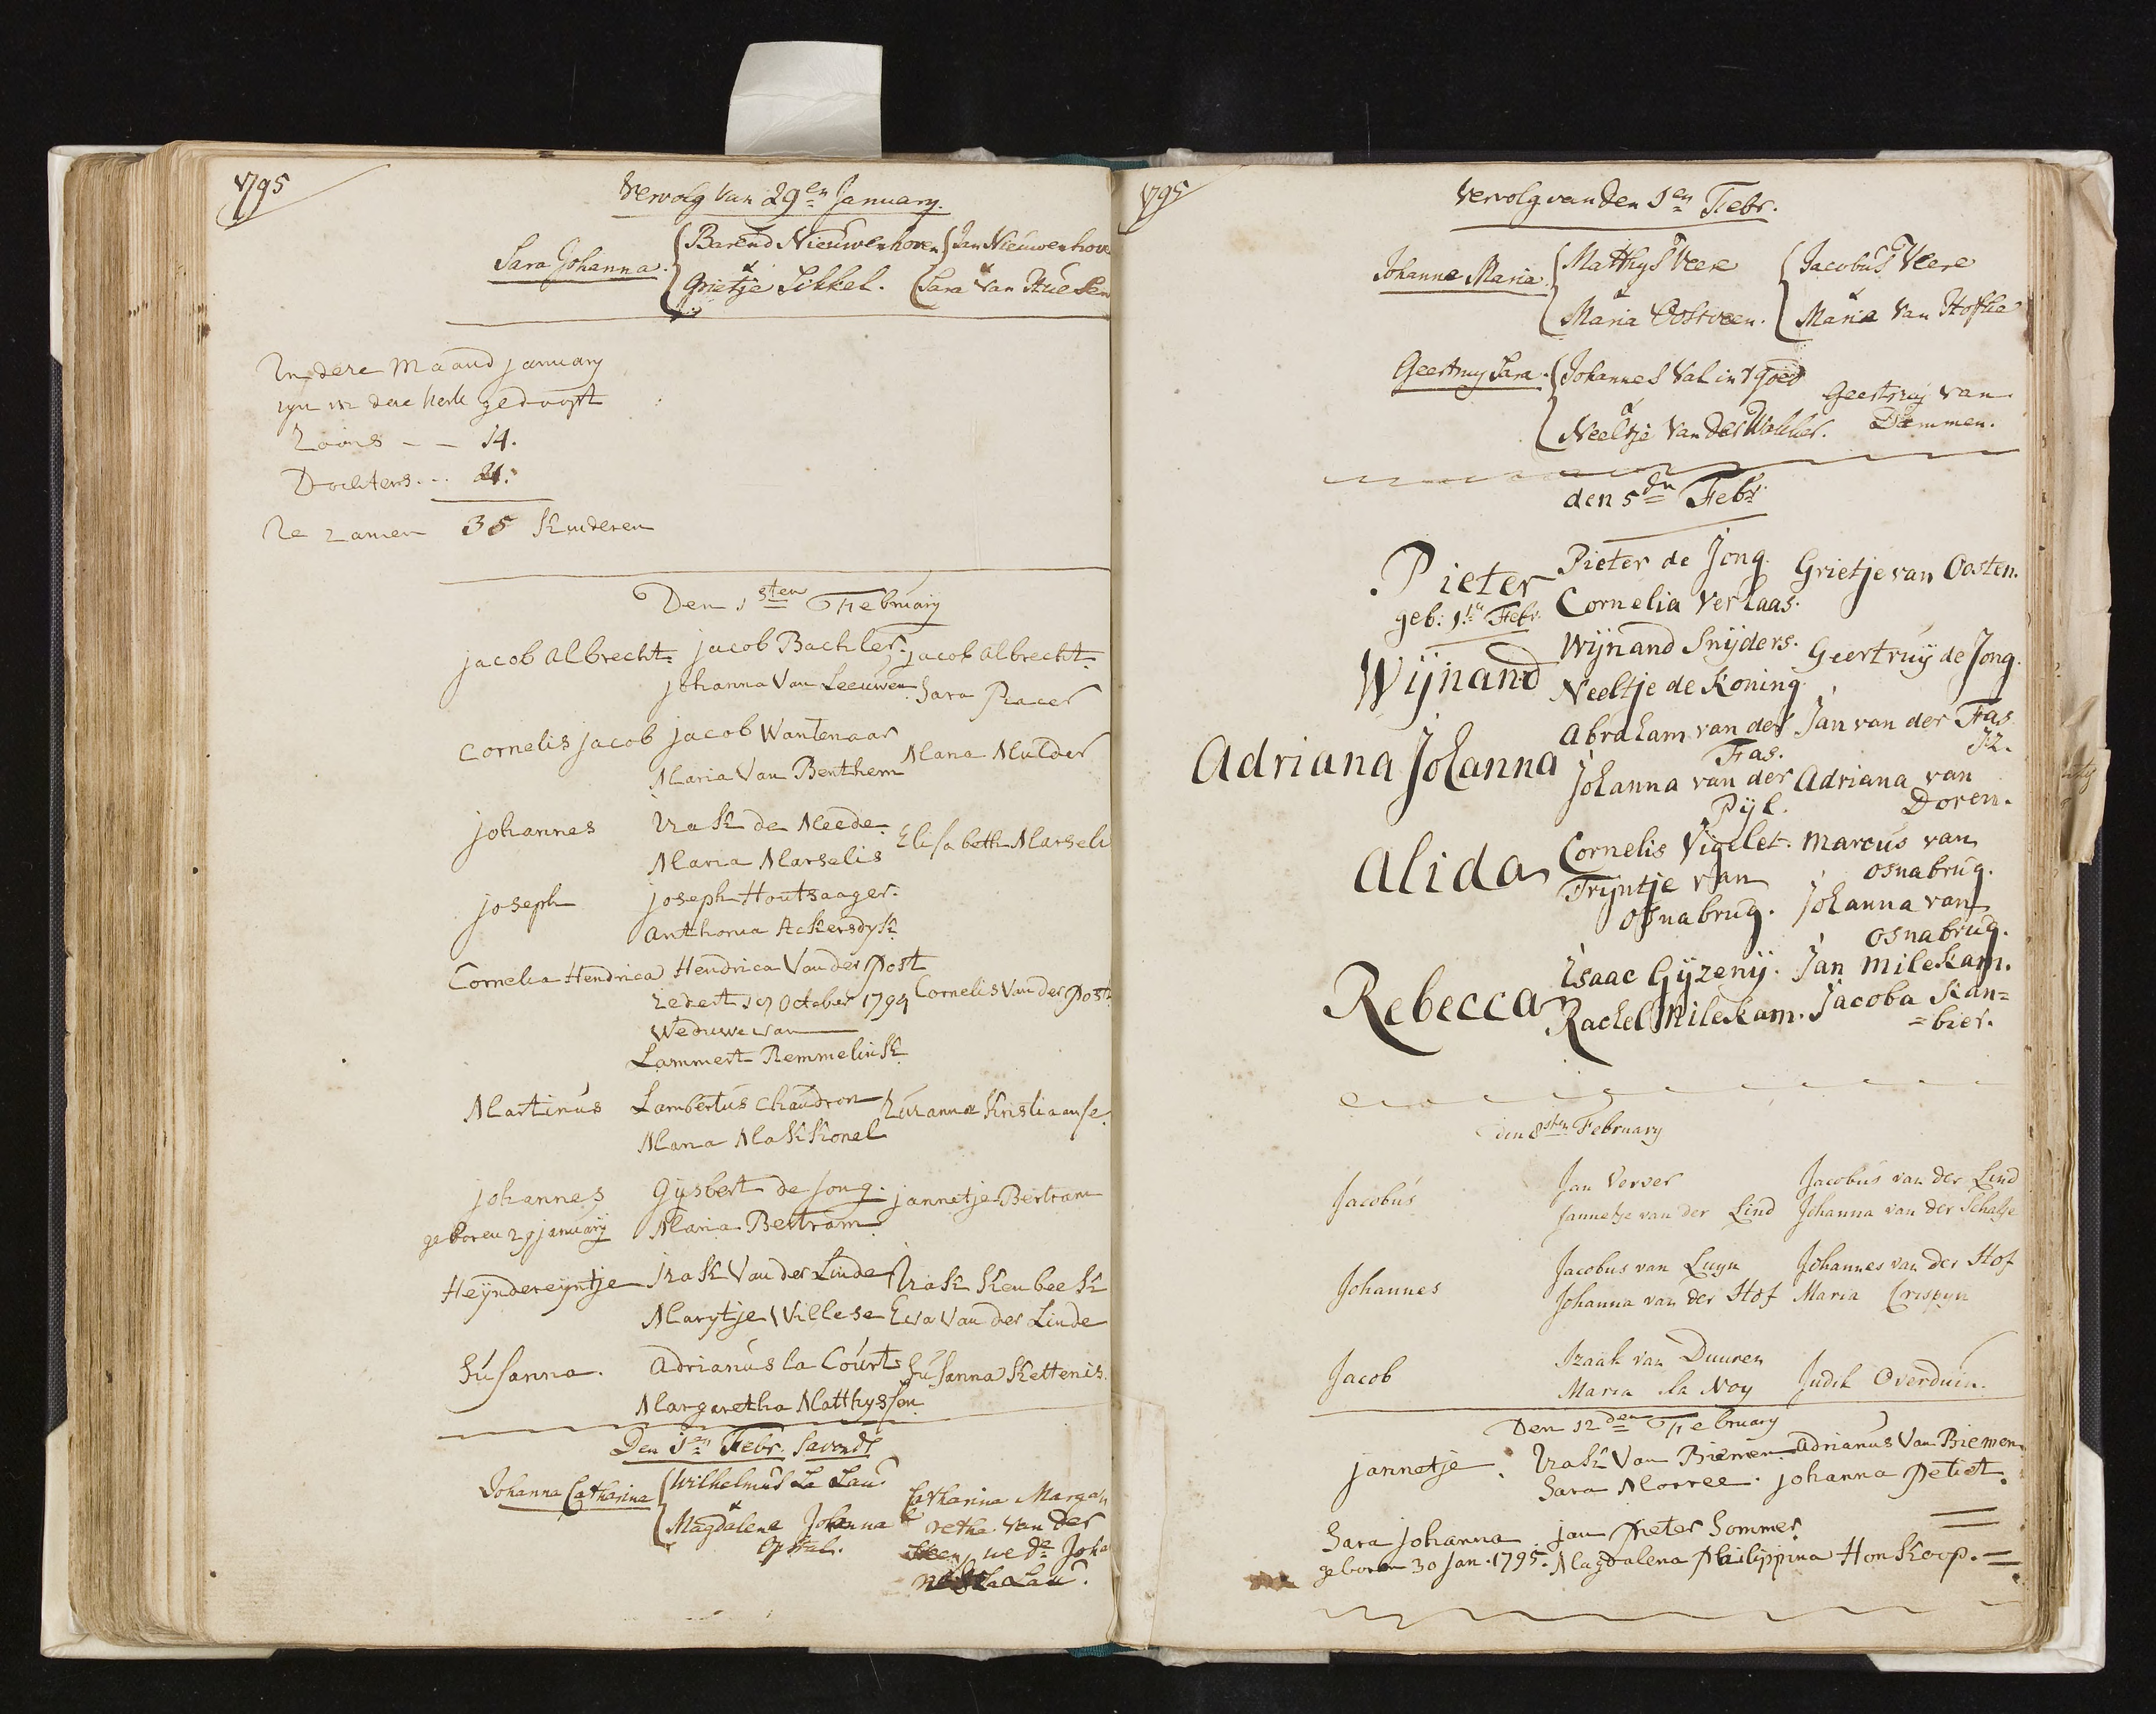 1795
Vervolg van 29en January.
Sara Johanna. Barend Nieuwenhoven Jan Nieuwenhove
& &
Grietje Sikkel. Sara van Huesen
In deze Maand january
zyn in deze kerk gedoopt
Zoons - - 14.
Dochters - - 21.
Te zamen 35 Kinderen
Den 1sten February
jacob albrecht jacob Bachler. jacob albrecht.
johanna Van Leeuwen Sara
Cornelis jacob jacob Wantenaar
Maria Mulder
Maria Van Benthem
johannes Izak de Meede
Elisabeth Marseli
Maria Marselis
joseph joseph Houtzaager.
anthonia Ackersdyk
Cornelia Hendrica Hendrica Van der Post
zedert 19 October 1794 Cornelis Van der Post
Weduwe van
Lammert Remmelink
Martinus Lambertus Chaudron Zuzanna Kristiaanse
Maria Makkonel
johannes Gysbert de jong. jannetje Bertram
geboren 29 january Maria Bertram
Heyndereyntje Izak Van der Linde Izak Keubeek
Marytje Willese Eva Van der Linde
Susanna. adrianus la Court Susanna Kettenis.
Margaretha Matthyssen
Den 1en Febr. savonds
Johanna Catharina Wilhelmus La Lau Catharina Marga
& retha van der
Magdalena Johanna
Opstal. Steen, we de Joha
nes La Lau.
1795
Vervolg van den 1en Febr.
Johanna Maria. Matthys Veere Jacobus Veere
& &
Maria Oostveen. Maria van Hofke
Geertruy Sara. Johannes Val in 't goed Geertruy van
& Dammen.
Neeltje van der Wakker.
den 5den Febr.
Pieter Pieter de Jong. Grietje van Oosten.
geb: 1sten Febr. Cornelia Verlaas.
Wijnand Wijnand Snijders. Geertruij de Jong.
Neeltje de Koning
Adriana Johanna Abraham van der Jan van der Fas
Fas. Jz.
Johanna van der Adriana van
Pijl. Doren.
Alida Cornelis Vigelet. Marcus van
Trijntje van osnabrug.
osnabrug. Johanna van
osnabrug.
Rebecca Isaac Gijzenij. Jan Milekam.
Rachel Milekam. Jacoba Kan=
=bier.
den 8sten February
Jacobus Jan Verver Jacobus van der Lind
Jannetje van der Lind Johanna van der Schalje
Johannes Jacobus van Luyn Johannes van der Hof
Johanna van der Hof Maria Crispyn
Jacob Izaak van Duuren
Maria la Noy Judik Overduin.
Den 12den February
jannetje. Izak Van Biemen. adrianus Van Biemen.
Sara Morree. johanna Petiet.
Sara johanna jan Pieter Sommer.
geboren 30 Jan. 1795. Magdalena Philippina Honkoop.